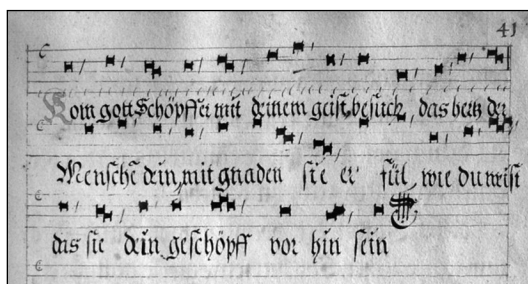 41
Kom gott Schöpffer mit deinem geist, besuch das hertz der
Menschē dein, mit gnaden sie er fül, wie du weist
das sie dein geschöpff vor hin sein